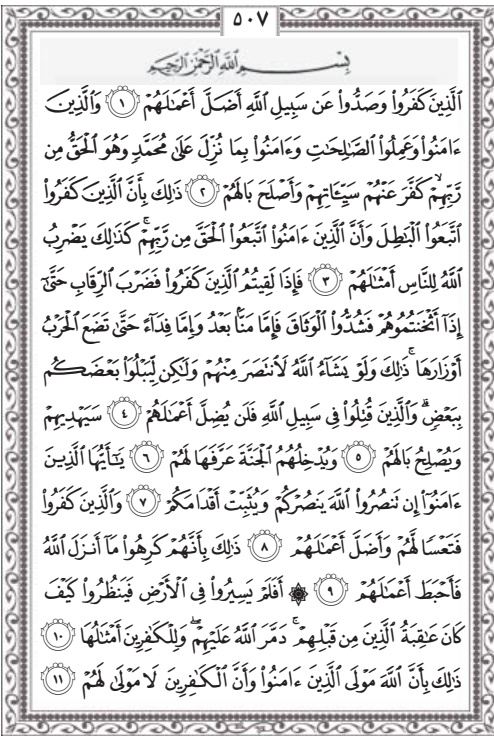 ٥٠٧
بِسْمِ ٱللَّهِ ٱلرَّحْمَٰنِ ٱلرَّحِيمِ
ٱلَّذِينَ كَفَرُوا۟ وَصَدُّوا۟ عَن سَبِيلِ ٱللَّهِ أَضَلَّ أَعْمَٰلَهُمْ ١ وَٱلَّذِينَ
ءَامَنُوا۟ وَعَمِلُوا۟ ٱلصَّٰلِحَٰتِ وَءَامَنُوا۟ بِمَا نُزِّلَ عَلَىٰ مُحَمَّدٍ وَهُوَ ٱلْحَقُّ مِن
رَّبِّهِمْ ۙ كَفَّرَ عَنْهُمْ سَيِّـَٔاتِهِمْ وَأَصْلَحَ بَالَهُمْ ٢ ذَٰلِكَ بِأَنَّ ٱلَّذِينَ كَفَرُوا۟
ٱتَّبَعُوا۟ ٱلْبَٰطِلَ وَأَنَّ ٱلَّذِينَ ءَامَنُوا۟ ٱتَّبَعُوا۟ ٱلْحَقَّ مِن رَّبِّهِمْ ۚ كَذَٰلِكَ يَضْرِبُ
ٱللَّهُ لِلنَّاسِ أَمْثَٰلَهُمْ ٣ فَإِذَا لَقِيتُمُ ٱلَّذِينَ كَفَرُوا۟ فَضَرْبَ ٱلرِّقَابِ حَتَّىٰٓ
إِذَآ أَثْخَنتُمُوهُمْ فَشُدُّوا۟ ٱلْوَثَاقَ فَإِمَّا مَنًّۢا بَعْدُ وَإِمَّا فِدَآءً حَتَّىٰ تَضَعَ ٱلْحَرْبُ
أَوْزَارَهَا ۚ ذَٰلِكَ وَلَوْ يَشَآءُ ٱللَّهُ لَٱنتَصَرَ مِنْهُمْ وَلَٰكِن لِّيَبْلُوَا۟ بَعْضَكُم
بِبَعْضٍ ۗ وَٱلَّذِينَ قُتِلُوا۟ فِى سَبِيلِ ٱللَّهِ فَلَن يُضِلَّ أَعْمَٰلَهُمْ ٤ سَيَهْدِيهِمْ
وَيُصْلِحُ بَالَهُمْ ٥ وَيُدْخِلُهُمُ ٱلْجَنَّةَ عَرَّفَهَا لَهُمْ ٦ يَٰٓأَيُّهَا ٱلَّذِينَ
ءَامَنُوٓا۟ إِن تَنصُرُوا۟ ٱللَّهَ يَنصُرْكُمْ وَيُثَبِّتْ أَقْدَامَكُمْ ٧ وَٱلَّذِينَ كَفَرُوا۟
فَتَعْسًا لَّهُمْ وَأَضَلَّ أَعْمَٰلَهُمْ ٨ ذَٰلِكَ بِأَنَّهُمْ كَرِهُوا۟ مَآ أَنزَلَ ٱللَّهُ
فَأَحْبَطَ أَعْمَٰلَهُمْ ٩ ۞ أَفَلَمْ يَسِيرُوا۟ فِى ٱلْأَرْضِ فَيَنظُرُوا۟ كَيْفَ
كَانَ عَٰقِبَةُ ٱلَّذِينَ مِن قَبْلِهِمْ ۚ دَمَّرَ ٱللَّهُ عَلَيْهِمْ ۖ وَلِلْكَٰفِرِينَ أَمْثَٰلُهَا ١٠
ذَٰلِكَ بِأَنَّ ٱللَّهَ مَوْلَى ٱلَّذِينَ ءَامَنُوا۟ وَأَنَّ ٱلْكَٰفِرِينَ لَا مَوْلَىٰ لَهُمْ ١١